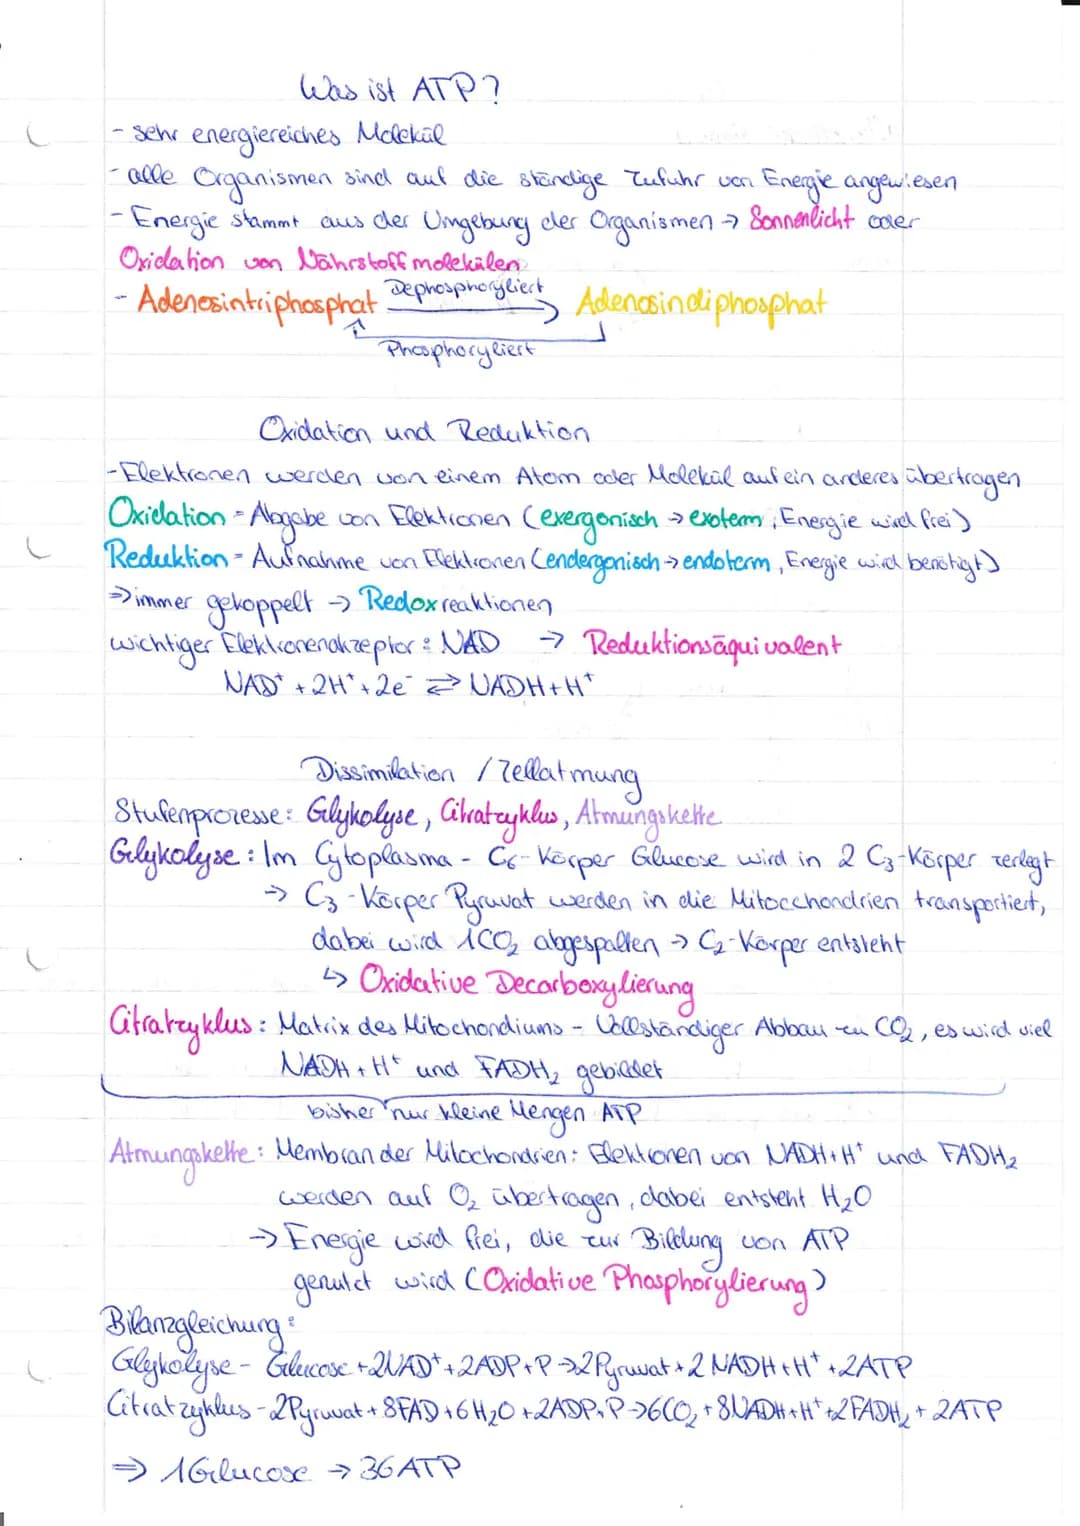 Was ist ATP?
- sehr energiereiches Molekül
- alle Organismen sind auf die ständige Zufuhr von Energie angewiesen
- Energie stammt aus der Umgebung der Organismen → Sonnenlicht oder
Oxidation von Nährstoffmolekülen
- Adenosintriphosphat Dephosphoryliert → Adenosindiphosphat
Phosphoryliert
Oxidation und Reduktion
- Elektronen werden von einem Atom oder Molekül auf ein anderes übertragen
Oxidation = Abgabe von Elektronen (exergonisch → exoterm, Energie wird frei)
Reduktion = Aufnahme von Elektronen (endergonisch → endoterm, Energie wird benötigt)
⇒ immer gekoppelt → Redoxreaktionen
wichtiger Elektronenakzeptor: NAD → Reduktionsäquivalent
NAD⁺ + 2H⁺ + 2e⁻ ⇄ NADH+H⁺
Dissimilation / Zellatmung
Stufenprozesse: Glykolyse, Citratzyklus, Atmungskette
Glykolyse: Im Cytoplasma - C₆-Körper Glucose wird in 2 C₃-Körper zerlegt
→ C₃-Körper Pyruvat werden in die Mitocchondrien transportiert,
dabei wird 1CO₂ abgespalten → C₂-Körper entsteht
↳ Oxidative Decarboxylierung
Citratzyklus: Matrix des Mitochondiums - Vollständiger Abbau zu CO₂, es wird viel
NADH + H⁺ und FADH₂ gebildet
bisher nur kleine Mengen ATP
Atmungskette: Membran der Mitochondrien: Elektronen von NADH+H⁺ und FADH₂
werden auf O₂ übertragen, dabei entsteht H₂O
→ Energie wird frei, die zur Bildung von ATP
genutzt wird (Oxidative Phosphorylierung)
Bilanzgleichung:
Glykolyse - Glucose + 2NAD⁺ + 2ADP + P → 2Pyruvat + 2 NADH + H⁺ + 2ATP
Citratzyklus - 2Pyruvat + 8FAD + 6H₂O + 2ADP + P → 6CO₂ + 8NADH + H⁺ + 2FADH₂ + 2ATP
⇒ 1Glucose → 36ATP